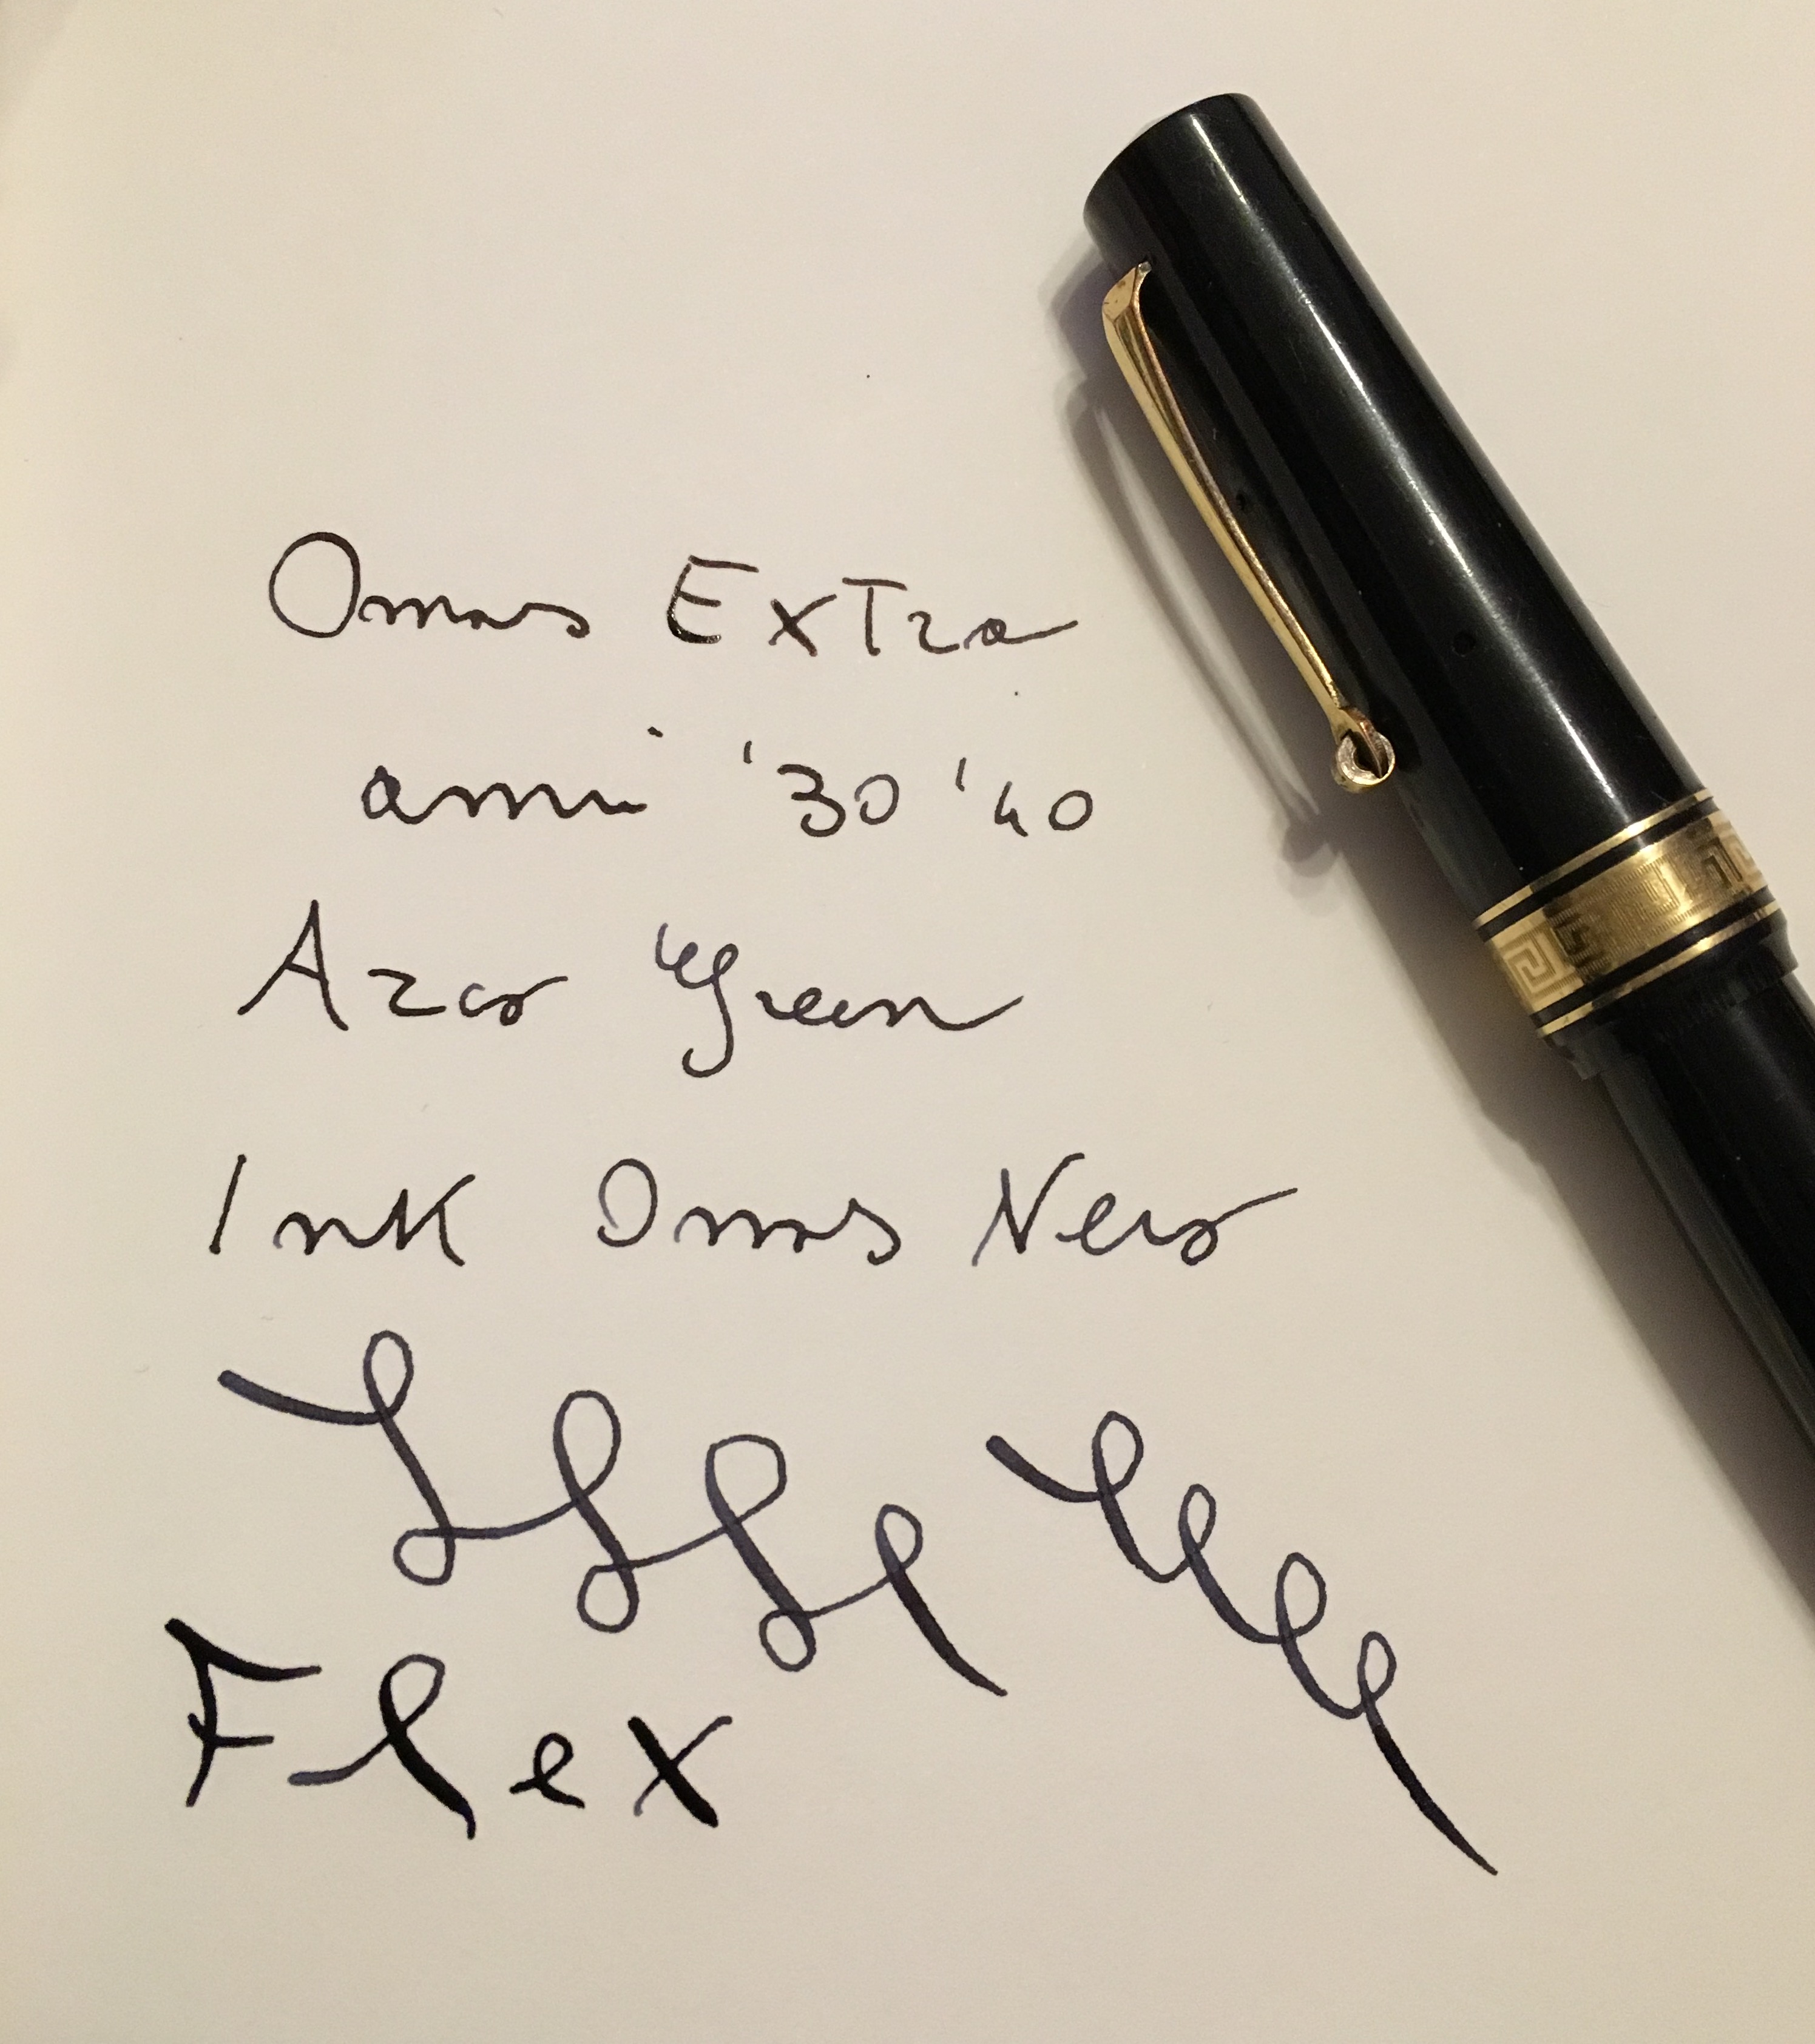 Omas Extra
anni '30 '40
Arco Green
Ink Omas Nero
Flex